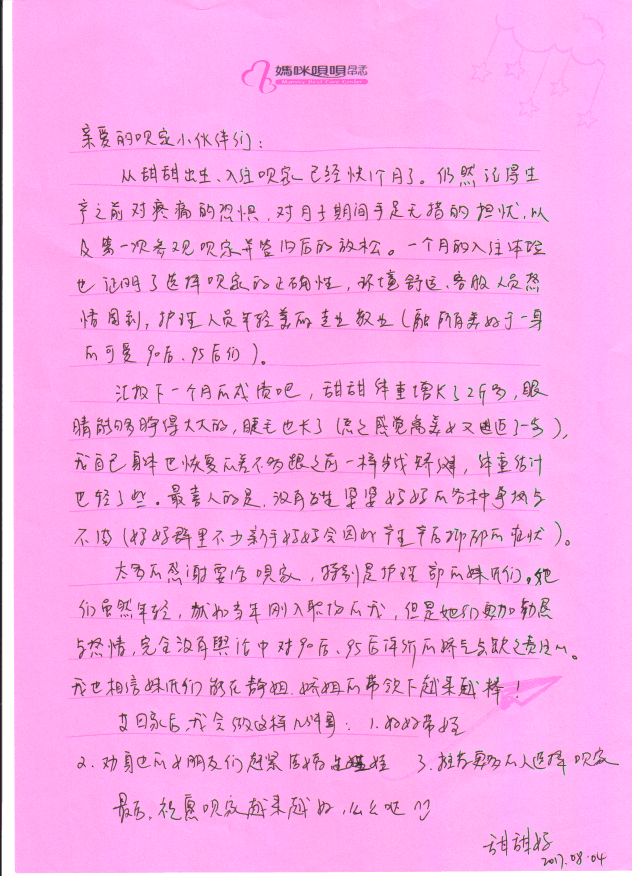 媽咪唄唄
亲爱的呗家小伙伴们：
从甜甜出生、入住呗家已经快1个月了。仍然记得生
产之前对疼痛的恐惧、对月子期间手足无措的担忧，以
及第一次参观呗家并签约后的放松。一个月的入住体验
也证明了选择呗家的正确性，环境舒适、客服人员热
情周到，护理人员年轻美丽专业敬业（融所有美好于一身
的可爱90后、95后们）。
汇报下一个月的成绩吧，甜甜体重增长了2斤多，眼
睛能够睁得大大的，睫毛也长了（总之感觉离美女又迈近了一步），
我自己身体也恢复的差不多跟之前一样步伐矫健，体重估计
也轻了些。最喜人的是，没有发生婆婆妈妈的各种争执与
不快（妈妈群里不少新手妈妈会因此产生产后抑郁的症状）。
太多的感谢要给呗家，特别是护理部的妹氏们。她
们虽然年轻，就如当年刚入职场的我，但是她们更加勤恳
与热情，完全没有舆论中对90后、95后评价的娇气与缺乏责任心。
我也相信妹氏们能在静姐、娇姐的带领下越来越棒！
文回家后，我会做这样几件事：1.好好带娃
2.劝身边的女朋友们赶紧结婚生娃 3.推荐更多的人选择呗家
最后，祝愿呗家越来越好，么么哒
甜甜妈
2017.08.04